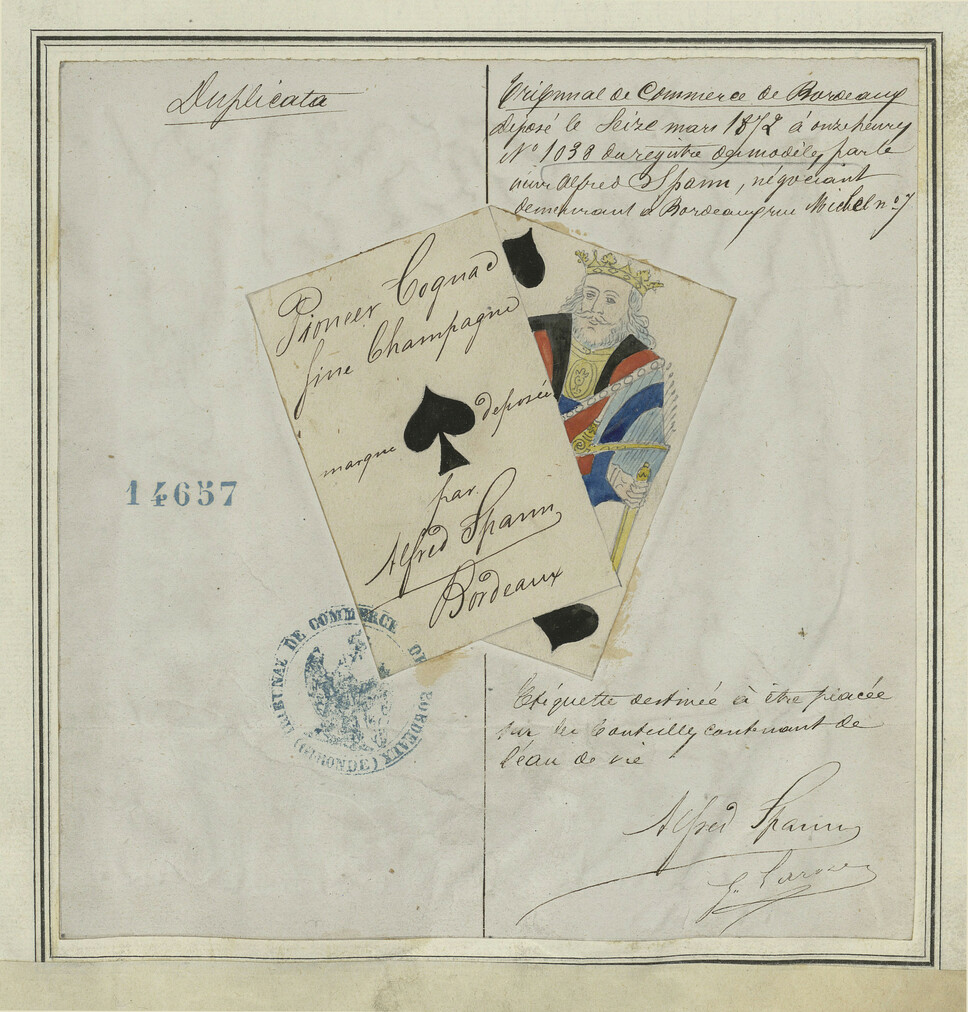 Duplicata
Tribunal de Commerce de Bordeaux
déposé le Seize mars 1872 à onze heures
No 1038 du registre des modèles, par le
sieur Alfred Spann, négociant
demeurant à Bordeaux rue Michel no 7
Pioneer Cognac
fine Champagne
marque deposée
par
Alfred Spann
Bordeaux
14657
TRIBUNAL DE COMMERCE DE BORDEAUX (GIRONDE)
Etiquette destinée à être placée
sur les bouteilles contenant de
l'eau de vie
Alfred Spann